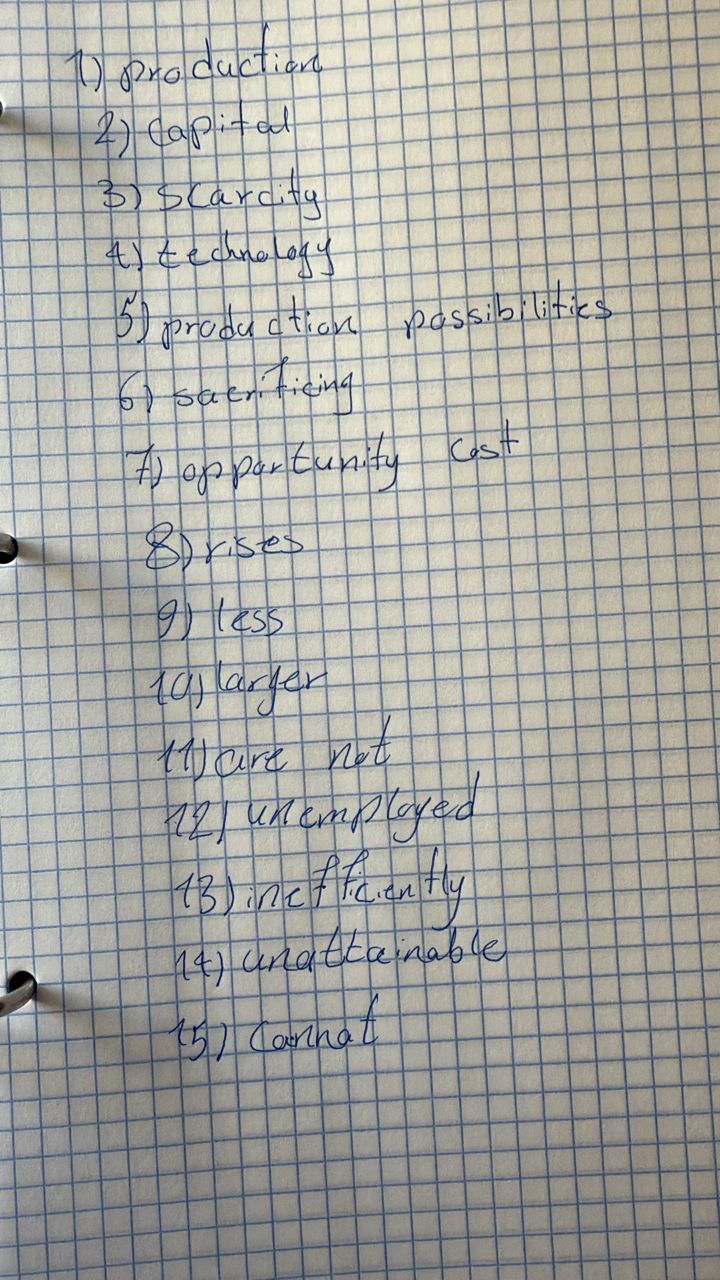 1) production
2) capital
3) scarcity
4) technology
5) production possibilities
6) sacrificing
7) opportunity cost
8) rises
9) less
10) larger
11) are not
12) unemployed
13) inefficiently
14) unattainable
15) cannot